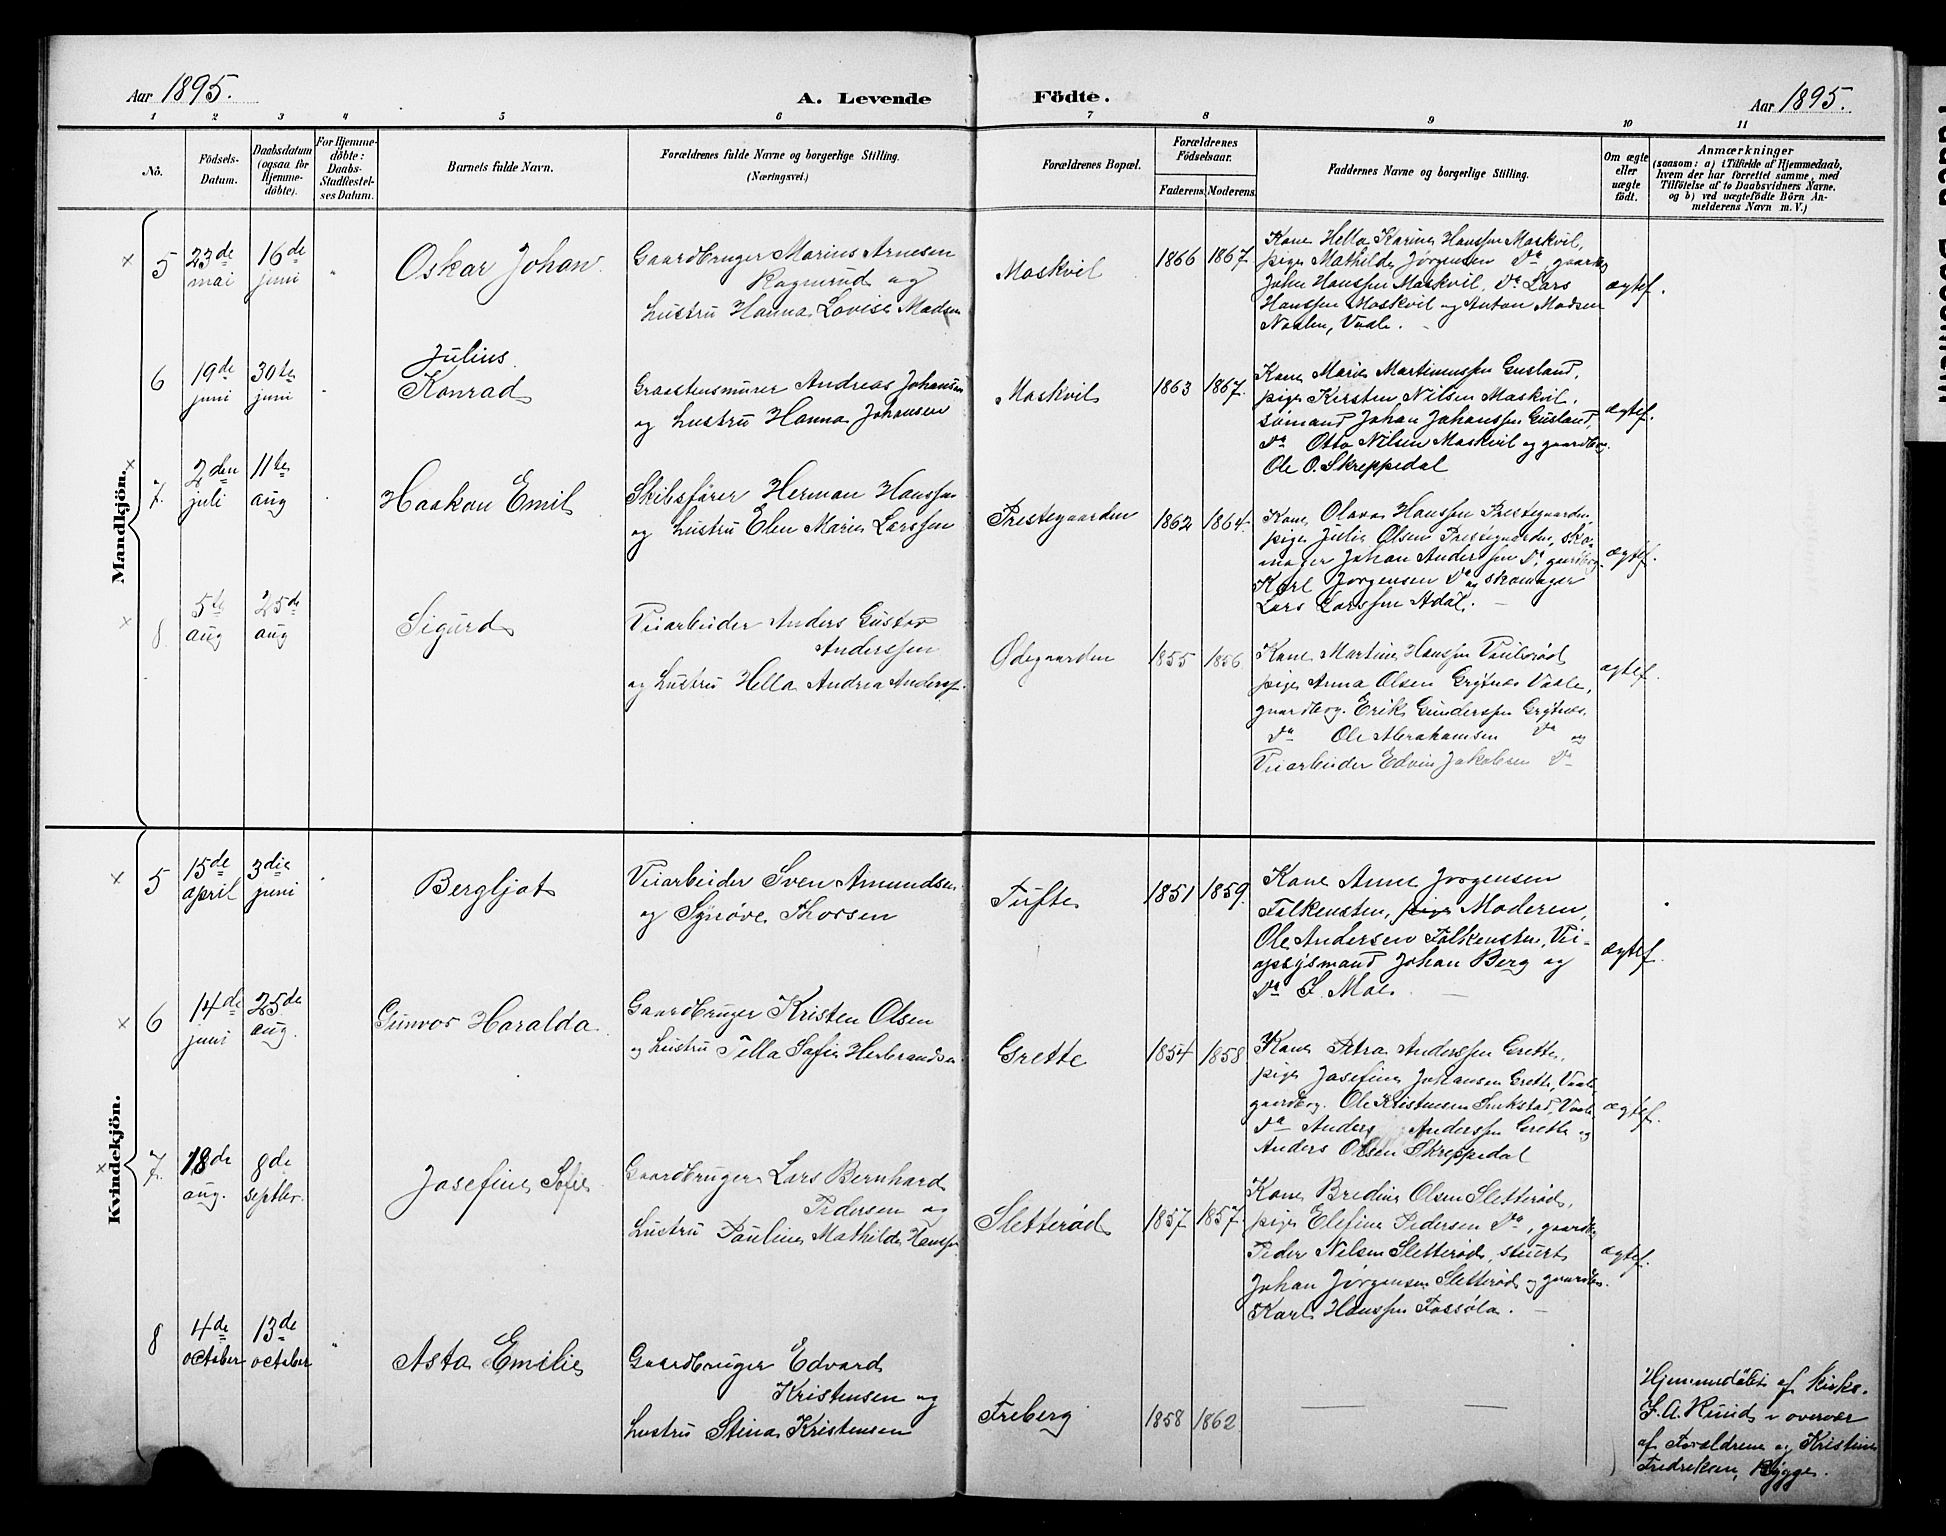 Aar 1895. A. Levende Födte. Aar 1895.
1 2 3 4 5 6 7 8 9 10 11
No.
Födsels-Datum.
Daabsdatum (ogsaa for Hjemme-döbte).
For Hjemme-döbte: Daabs-Stadfæstel-ses Datum.
Barnets fulde Navn.
Forældrenes fulde Navne og borgerlige Stilling.
(Næringsvei.)
Forældrenes Bopæl.
Forældrenes Födselsaar.
Faderens. Moderens.
Faddernes Navne og borgerlige Stilling.
Om ægte eller uægte födt.
Anmærkninger
(saasom: a) i Tilfælde af Hjemmedaab,
hvem der har forrettet samme, med
Tilföielse af to Daabsvidners Navne,
og b) ved uægtefödte Börn An-
melderens Navn m. V.)
Mandkjön.
5 23de mai 16de juni
Oskar Johan
Gaardbruger Marius Arnesen
Ragnerud og
hustru Hanna Lovise Madsen
Maskvil 1866 1867.
Kone Hella Karine Hanssen Maskvil,
pige Mathilde Jørgensen Do gaardbr
John Hanssen Maskvil, Do Lars
Hanssen Maskvil og Anton Madsen
Naalen, Vaale.
ægtef.
6 19de juni 30te juni
Julius
Konrad
Graastensmurer Andreas Johansen
og hustru Hanna Johansen
Maskvil 1863 1867.
Kone Marie Martinussen Gusland,
pige Kirsten Nilsen Maskvil,
sømand Johan Johanssen Gusland,
Do Otto Nilsen Maskvil og gaardbrg.
Ole O. Skreppedal
ægtef.
7. 2den juli 11te aug
Haakon Emil
Skibsfører Herman Hanssen
og hustru Elen Marie Larssen
Prestegaarden 1862 1864.
Kone Olava Hanssen Prestegaarden,
pige Julie Olsen Prestegaarden, sko-
mager Johan Anderssen Do, gaardbrg.
Karl Jørgensen Do og skomager
Lars Larssen Adal.
ægtef.
8. 5te aug 25de aug
Sigurd
Veiarbeider Anders Gustav
Anderssen
og hustru Hella Andrea Anderss.
Ødegaarden 1855 1856.
Kone Martine Hanssen
pige Anna Olsen Grytnes Vaale,
gaardbrg. Erik Gunderssen Grytnes,
Do Ole Abrahamsen Do og
Veiarbeider Edvin Jakobsen Do
ægtef.
Kvindekjön.
5 15de april 3die juni
Bergljot
Veiarbeider Sven Amundsen
og Synøve Thorsen
Tufte 1851 1859.
Kone Anne Jørgensen
Falkensten, pige Moderen,
Ole Andersen Falkensten, Vei-
opsysmand Johan Berg og
Do S. Moe.
ægtef.
6 14de juni 25de aug.
Gunvor Haralda
Gaardbruger Kristen Olsen
og hustru Tella Sofie Herbrandsen
Grette 1854 1858
Kone Petra Anderssen Grette,
pige Josefine Johansen Grette, Vaale
gaardbrg. Ole Kristensen Vaale
Do Anders Anderssen Grette og
Anders Olsen Skreppedal
ægtef.
7. 18de aug. 8de septbr.
Josefine Sofie
Gaardbruger Lars Bernhard
Pedersen og
hustru Pauline Mathilde Hanssen
Sletterød 1857 1857.
Kone Bredine Olsen Sletterød,
pige Elefine Pedersen Do, gaardb.
Peder Nilsen Sletterød, stuert
Johan Jørgensen Sletterød og gaardbr.
Karl Hanssen Fossøla.
ægtef.
8 4de october 13de october
Asta Emilie
Gaardbruger Edvard
Kristensen og
hustru Stina Kristensen
Freberg 1858 1862.
Hjemmedøbt af kirkes.
F. A. i overvær
af Forældrene og Kristine
Fredriksen, Rygge.